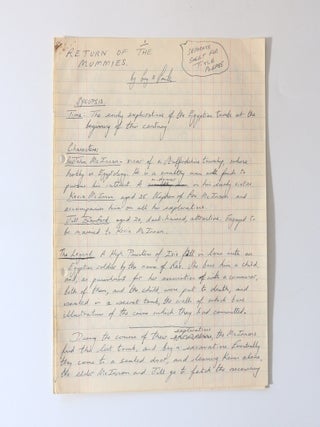 RETURN OF THE
MUMMIES.
SEPARATE
SHEET FOR
TITLE
PLEASE
by
SYNOPSIS.
Time: The early explorations of the Egyptian tombs at the
beginning of this century
Characters:
McInnon vicar of a Staffordshire township whose
hobby is Egyptology. He is a wealthy man with funds to
pursue his interest. A widower in his early sixties.
Kevin McInnon aged 35 Nephew of Mr McInnon and
accompanies him on all his explorations.
Jill aged 30, dark-haired, attractive. Engaged to
be married to Kevin McInnon.
The Legend: A High Priestess of Isis fell in love with an
Egyptian soldier by the name of She bore him a child
and, as punishment for her association of with a commoner,
both of them, and the child were put to death, and
sealed in a secret tomb, the walls of which bore
illustrations of the crime which they had committed.
During the course of their explorations, the McInnons
find this lost tomb, and begin excavations. Eventually
they come to a sealed door, and leaving Kevin alone,
the elder McInnon and Jill go to fetch the necessary